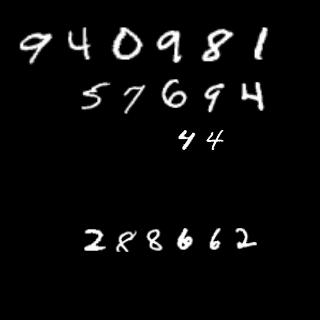 940981
57694
44
288662